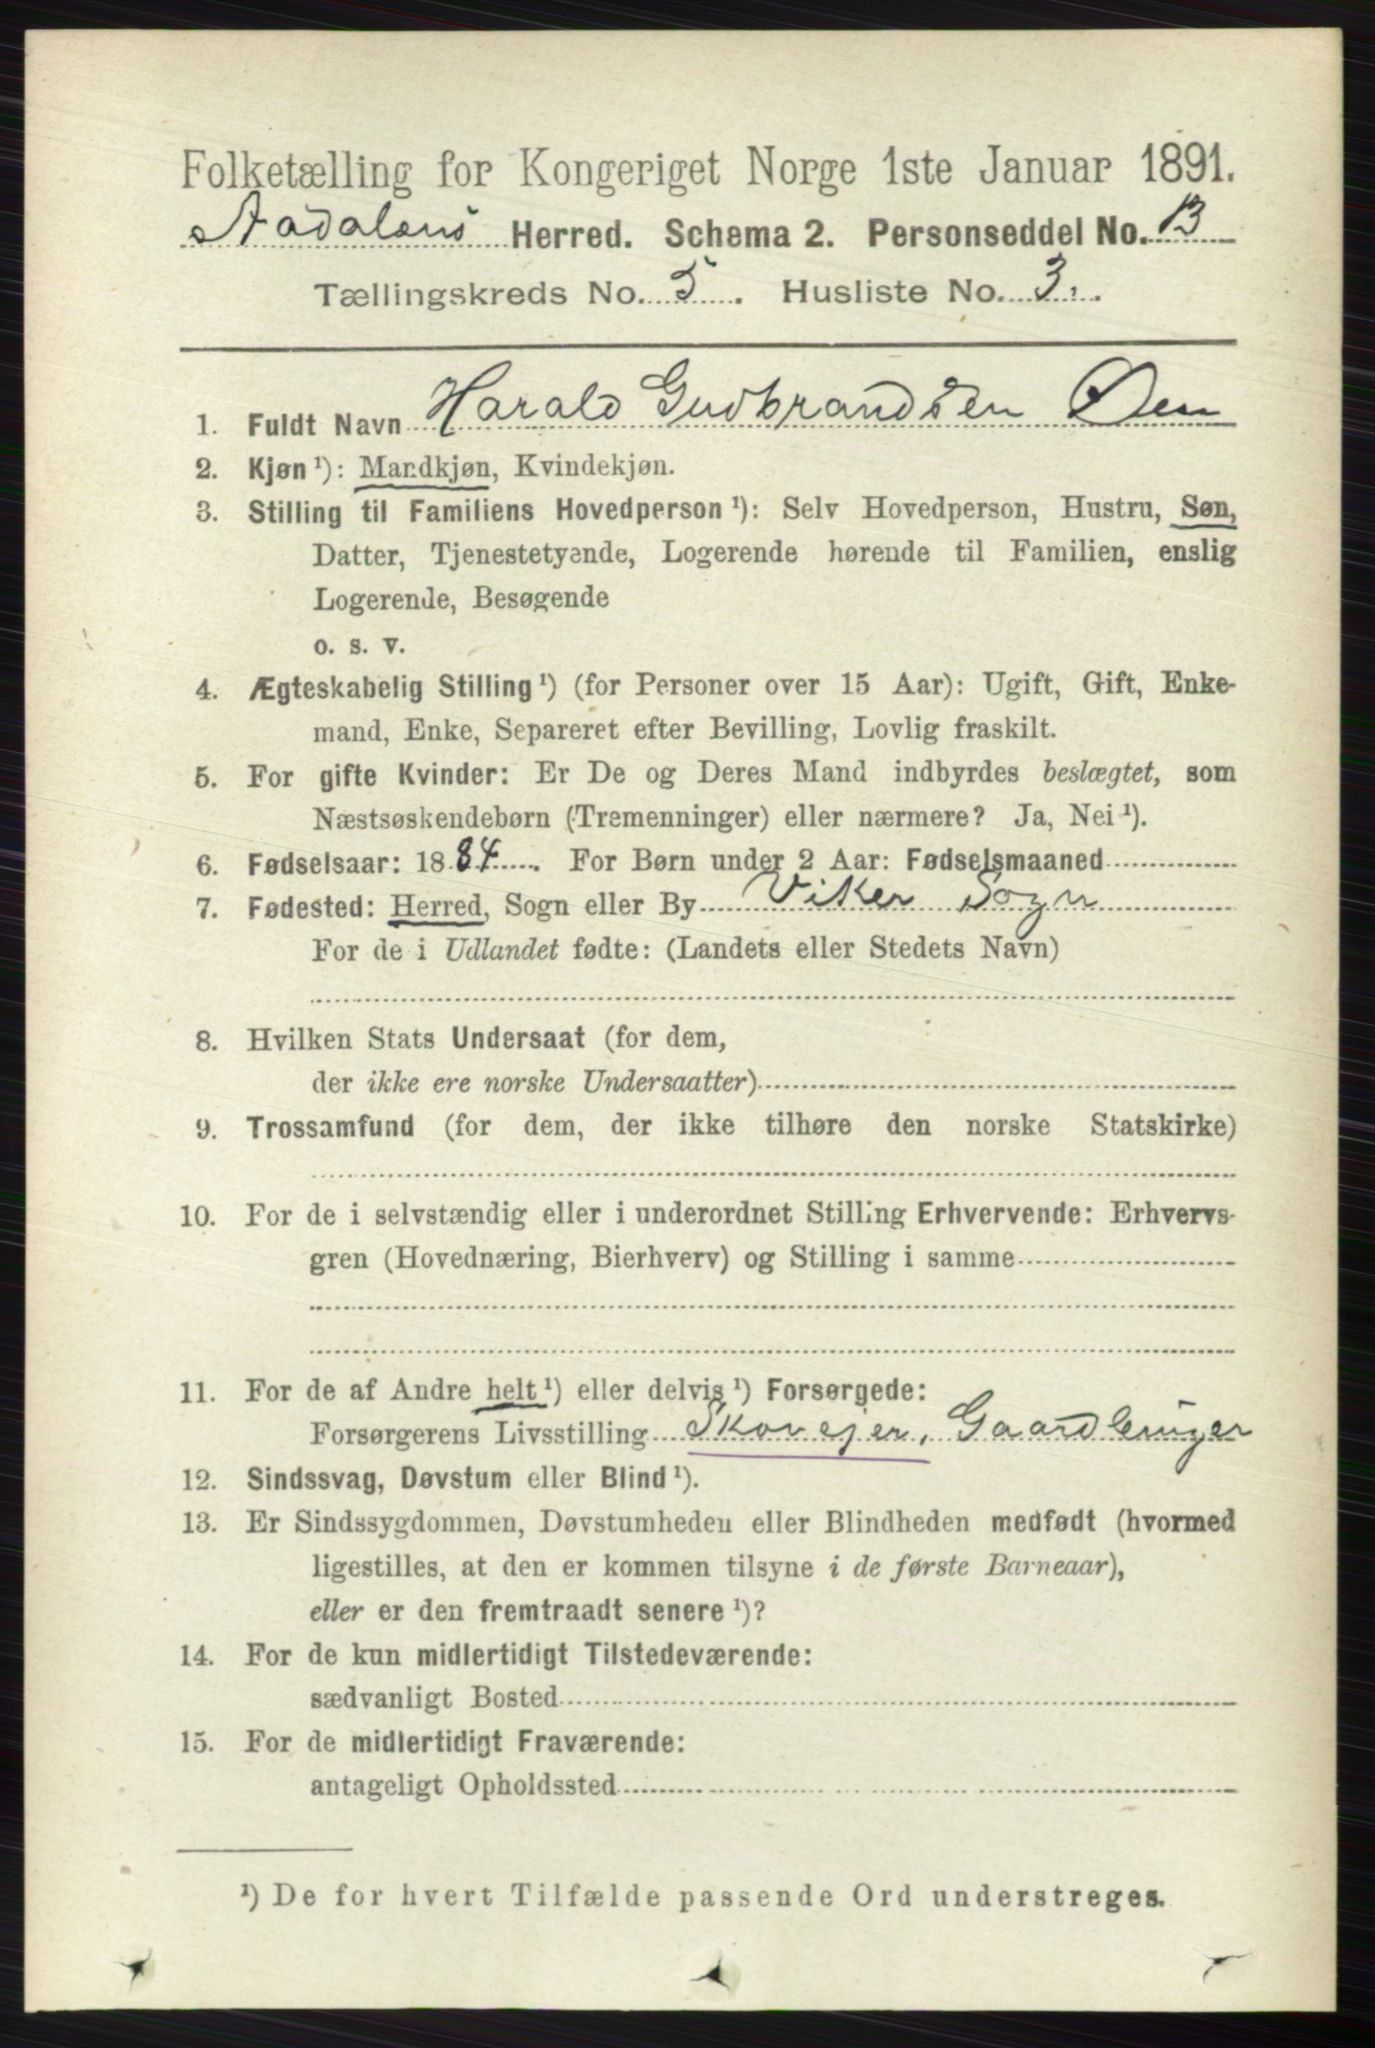 Folketælling for Kongeriget Norge 1ste Januar 1891.
Aadalens Herred. Schema 2. Personseddel No. 13
Tællingskreds No. 5. Husliste No. 3.
1. Fuldt Navn Harald Gudbrandsen Øen
2. Kjøn ¹): Mandkjøn, Kvindekjøn.
3. Stilling til Familiens Hovedperson ¹): Selv Hovedperson, Hustru, Søn,
Datter, Tjenestetyende, Logerende hørende til Familien, enslig
Logerende, Besøgende
o. s. v.
4. Ægteskabelig Stilling ¹) (for Personer over 15 Aar): Ugift, Gift, Enke-
mand, Enke, Separeret efter Bevilling, Lovlig fraskilt.
5. For gifte Kvinder: Er De og Deres Mand indbyrdes beslægtet, som
Næstsøskendebørn (Tremenninger) eller nærmere? Ja, Nei ¹).
6. Fødselsaar: 1884. For Børn under 2 Aar: Fødselsmaaned
7. Fødested: Herred, Sogn eller By Viker Sogn
For de i Udlandet fødte: (Landets eller Stedets Navn)
8. Hvilken Stats Undersaat (for dem,
der ikke ere norske Undersaatter)
9. Trossamfund (for dem, der ikke tilhøre den norske Statskirke)
10. For de i selvstændig eller i underordnet Stilling Erhvervende: Erhvervs-
gren (Hovednæring, Bierhverv) og Stilling i samme
11. For de af Andre helt ¹) eller delvis ¹) Forsørgede:
Forsørgerens Livsstilling Skovejer, Gaardbruger
12. Sindssvag, Døvstum eller Blind ¹).
13. Er Sindssygdommen, Døvstumheden eller Blindheden medfødt (hvormed
ligestilles, at den er kommen tilsyne i de første Barneaar),
eller er den fremtraadt senere ¹)?
14. For de kun midlertidigt Tilstedeværende:
sædvanligt Bosted
15. For de midlertidigt Fraværende:
antageligt Opholdssted
¹) De for hvert Tilfælde passende Ord understreges.